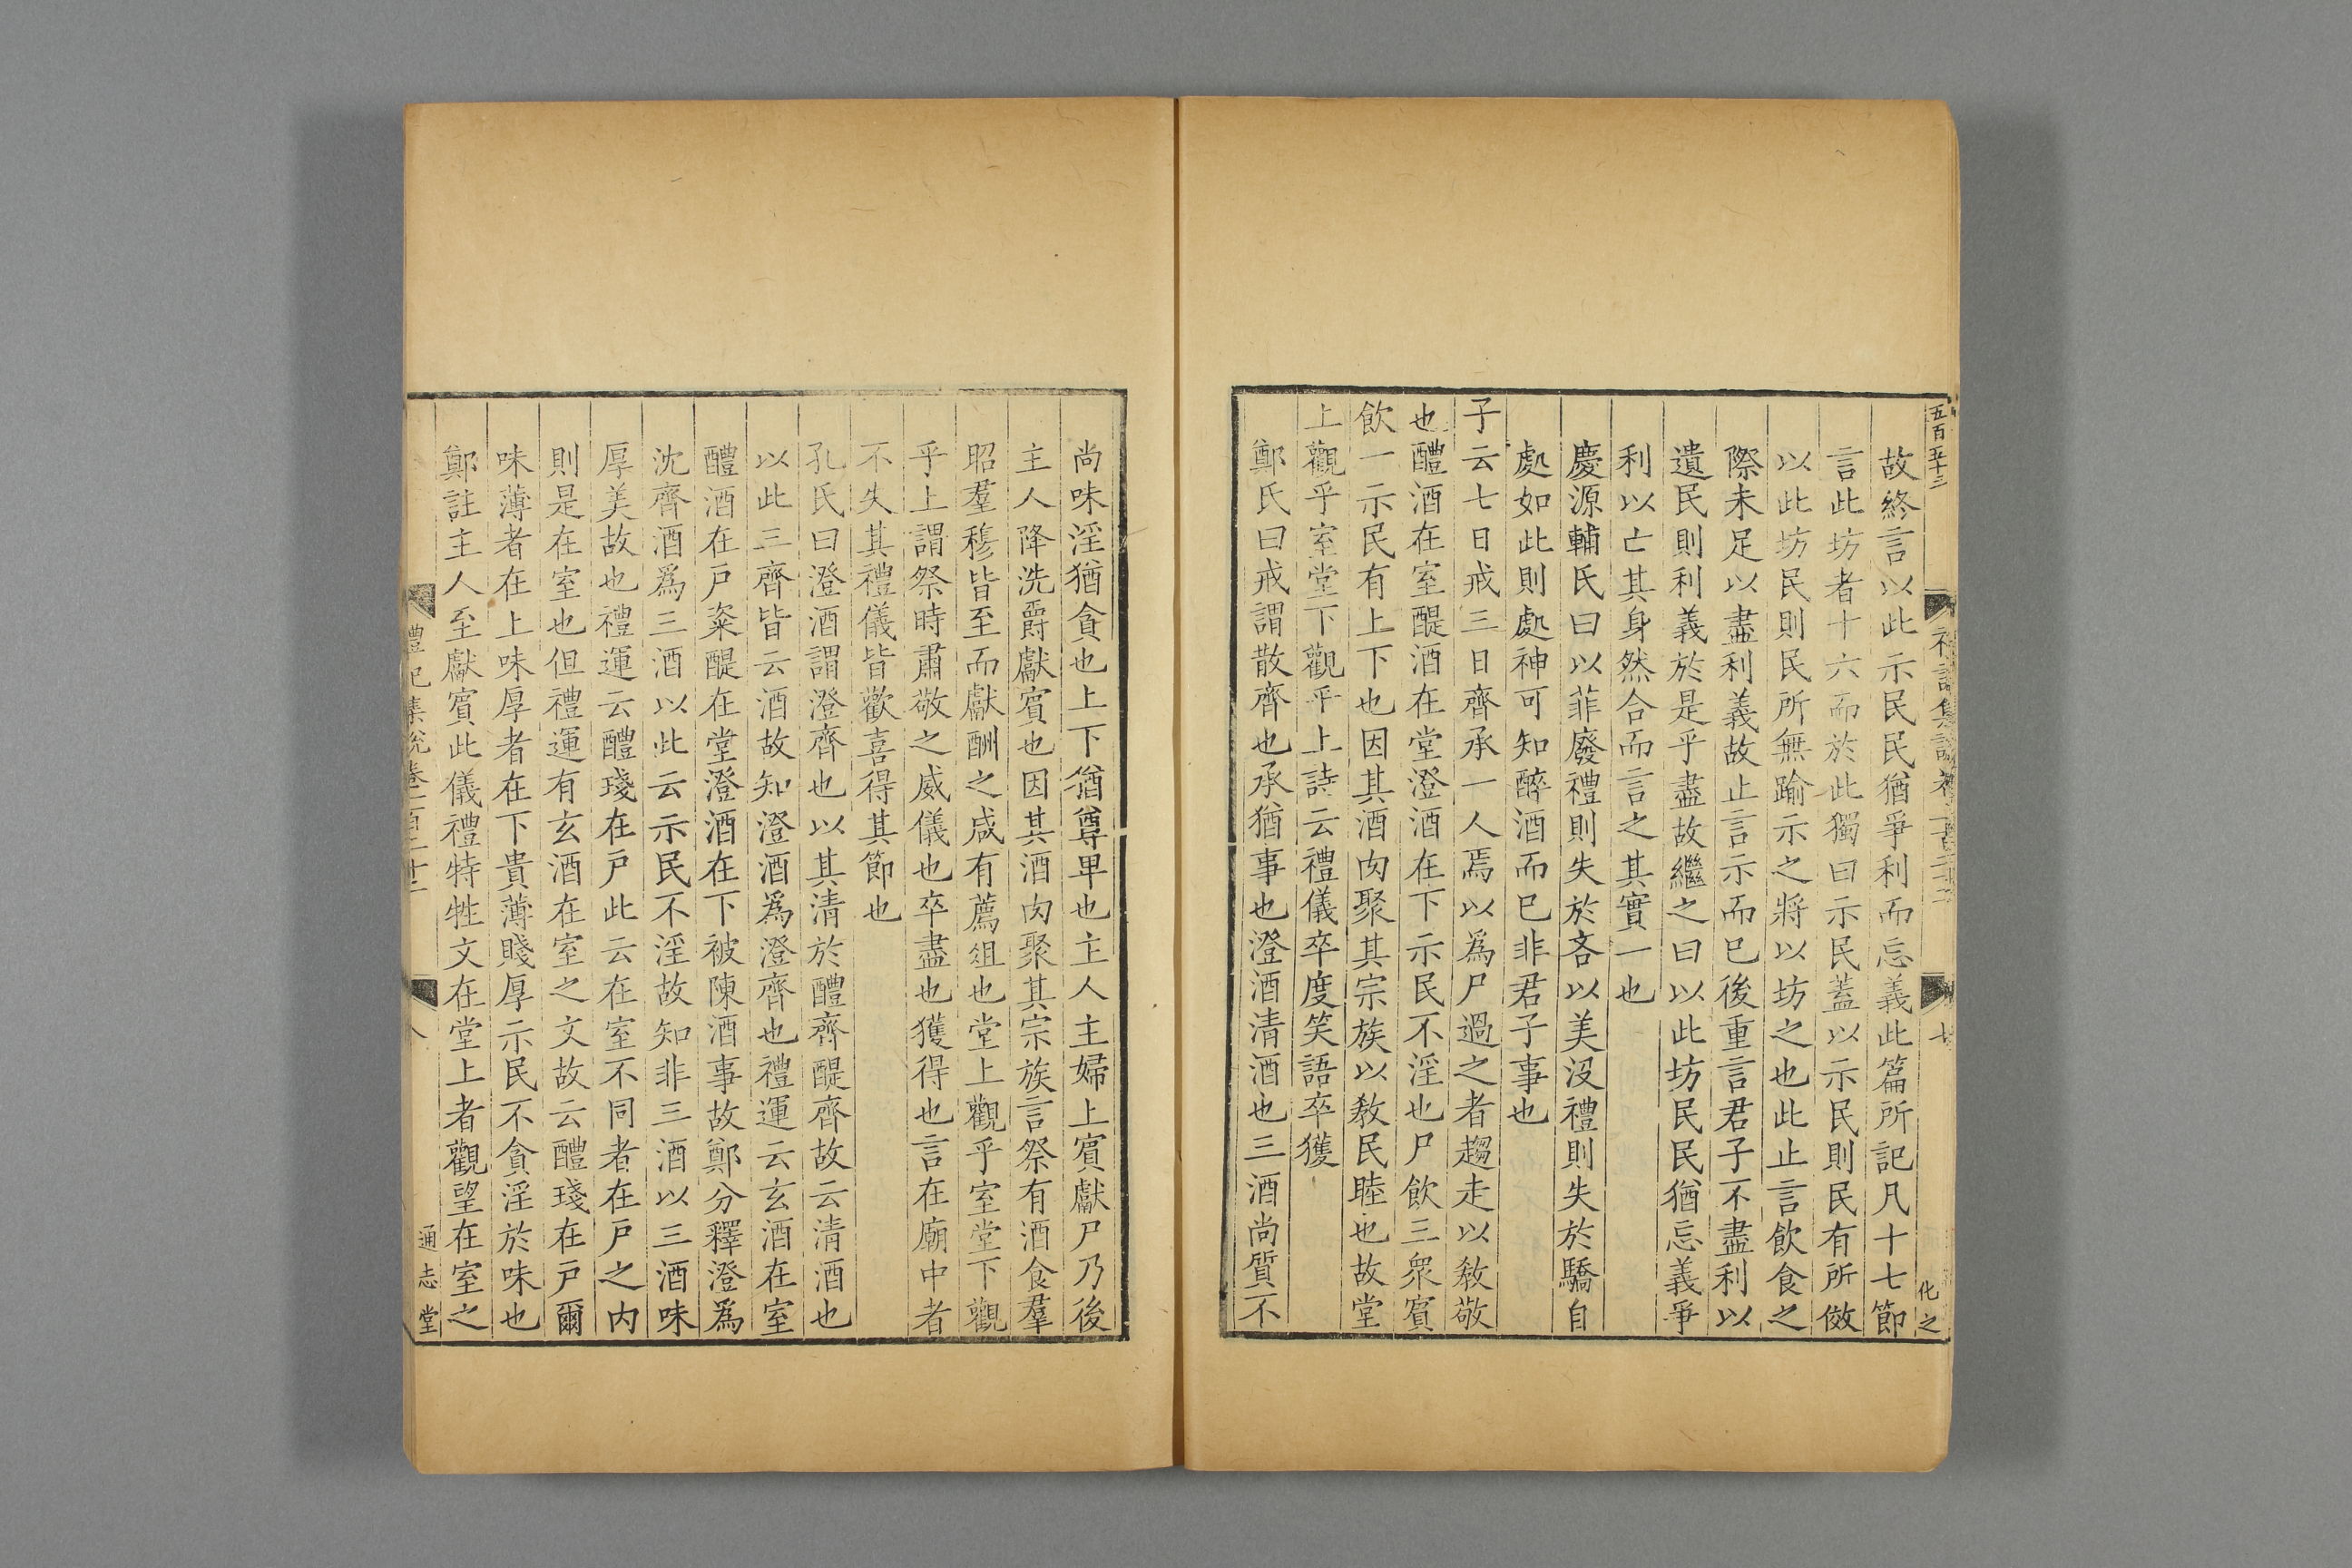 五百五十三
禮記集說卷一百二十二
七
化之
故終言以此示民民猶爭利而忘義此篇所記凡十七節
言此坊者十六而於此獨曰示民蓋以示民則民有所倣
以此坊民則民所無踰示之將以坊之也此止言飲食之
際未足以盡利義故止言示而已後重言君子不盡利以
遺民則利義於是乎盡故繼之曰以此坊民民猶忘義爭
利以亡其身然合而言之其實一也
慶源輔氏曰以菲廢禮則失於吝以美沒禮則失於驕自
處如此則處神可知醉酒而已非君子事也
子云七日戒三日齊承一人焉以為尸過之者趨走以敎敬
也醴酒在室醍酒在堂澄酒在下示民不淫也尸飲三衆賓
飲一示民有上下也因其酒肉聚其宗族以敎民睦也故堂
上觀乎室堂下觀乎上詩云禮儀卒度笑語卒獲
鄭氏曰戒謂散齊也承猶事也澄酒清酒也三酒尚質不
尚味淫猶貪也上下猶尊卑也主人主婦上賓獻尸乃後
主人降洗爵獻賓也因其酒肉聚其宗族言祭有酒食羣
昭羣穆皆至而獻酬之咸有薦俎也堂上觀乎室堂下觀
乎上謂祭時肅敬之威儀也卒盡也獲得也言在廟中者
不失其禮儀皆歡喜得其節也
孔氏曰澄酒謂澄齊也以其清於醴齊醍齊故云清酒也
以此三齊皆云酒故知澄酒爲澄齊也禮運云玄酒在室
醴酒在戶粢醍在堂澄酒在下被陳酒事故鄭分釋澄爲
沈齊酒爲三酒以此云示民不淫故知非三酒以三酒味
厚美故也禮運云醴琖在戶此云在室不同者在戶之內
則是在室也但禮運有玄酒在室之文故云醴琖在戶爾
味薄者在上味厚者在下貴薄賤厚示民不貪淫於味也
鄭註主人至獻賓此儀禮特牲文在堂上者觀望在室之
禮記集說卷一百二十二
八
通志堂